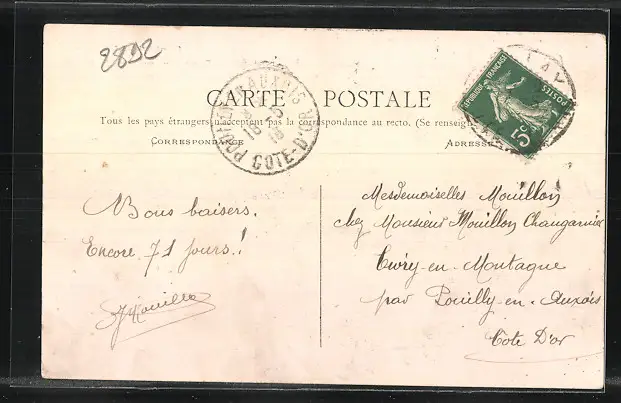 2892
CARTE POSTALE
Tous les pays étrangers n'acceptent pas la correspondance au recto. (Se renseig
CORRESPONDANCE
ADRESSE
POUILLY-EN-AUXOIS
COTE-D'OR
REPUBLIQUE FRANÇAISE
POSTES
5c
Bons baisers.
Encore 71 jours!
Mouillon
Mesdemoiselles Mouillon
chez Monsieur Mouillon Changarnier
Civry-en-Montagne
par Pouilly-en-Auxois
Cote D'or